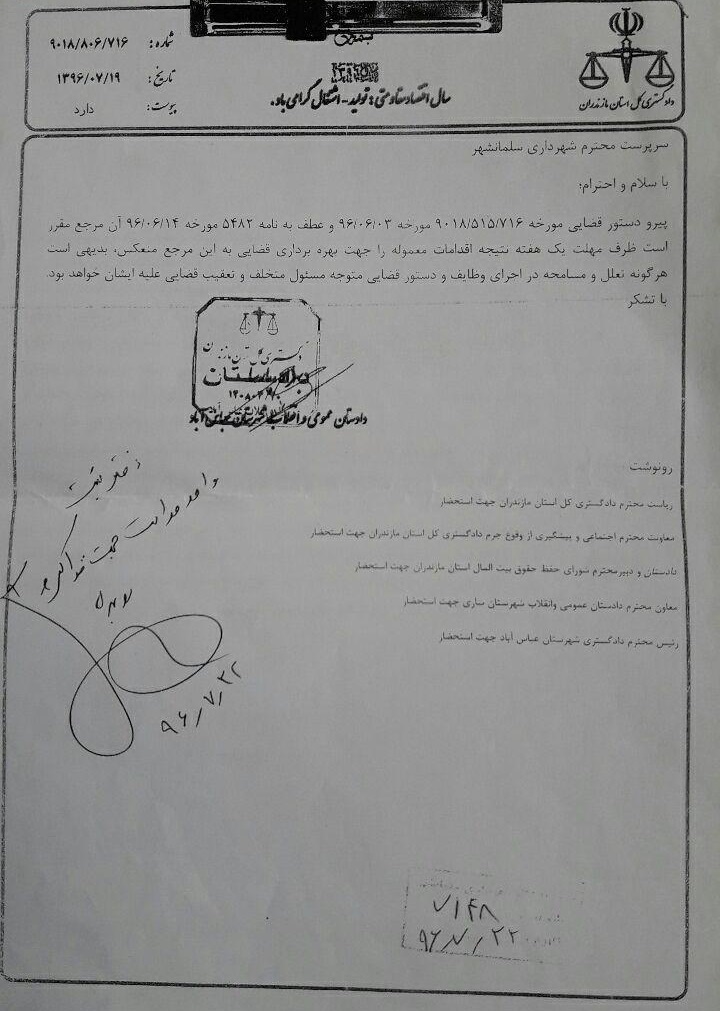 شماره: ۹۰۱۸/۸۰۶/۷۱۶
تاریخ: ۱۳۹۶/۰۷/۱۹
پیوست: دارد
سال اقتصاد مقاومتی: تولید - اشتغال گرامی باد.
دادگستری کل استان مازندران
سرپرست محترم شهرداری سلمانشهر
با سلام و احترام؛
پیرو دستور قضایی مورخه ۹۰۱۸/۵۱۵/۷۱۶ مورخه ۹۶/۰۶/۰۳ و عطف به نامه ۵۴۸۲ مورخه ۹۶/۰۶/۱۴ آن مرجع مقرر
است ظرف مهلت یک هفته نتیجه اقدامات معموله را جهت بهره برداری قضایی به این مرجع منعکس، بدیهی است
هرگونه تعلل و مسامحه در اجرای وظایف و دستور قضایی متوجه مسئول متخلف و تعقیب قضایی علیه ایشان خواهد بود.
با تشکر
دادستان عمومی و انقلاب شهرستان عباس آباد
رونوشت
ریاست محترم دادگستری کل استان مازندران جهت استحضار
معاونت محترم اجتماعی و پیشگیری از وقوع جرم دادگستری کل استان مازندران جهت استحضار
دادستان و دبیر محترم شورای حفظ حقوق بیت المال استان مازندران جهت استحضار
معاون محترم دادستان عمومی وانقلاب شهرستان ساری جهت استحضار
رئیس محترم دادگستری شهرستان عباس آباد جهت استحضار
۹۶/۷/۲۲
۷۱۴۸
۹۶/۷/۲۲